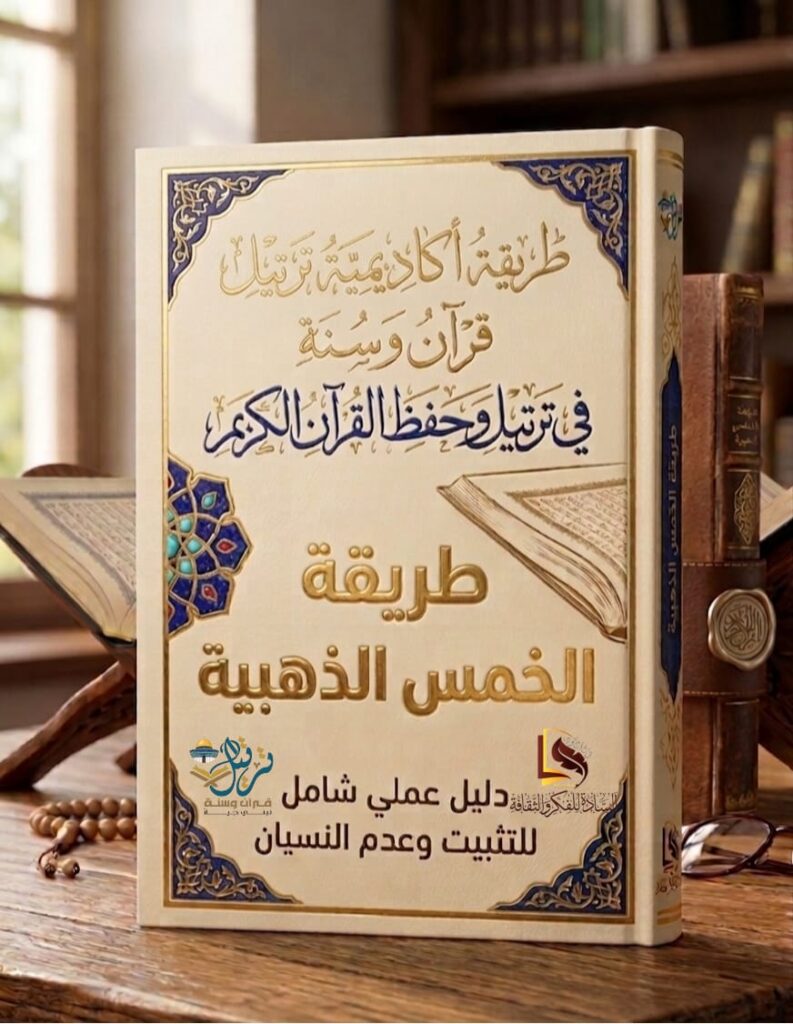 طريقةُ أكاديميَّة ترتيل
قرآنُ وَسُنَة
في ترتيل وَحفظَ القُرآن الكريم
طريقة
الخمس الذهبية
ترتيل
قرآن وسنة
دليل عملي شامل
للتثبيت وعدم النسيان
السادة للفكر والثقافة
طريقة الخمس الذهبية